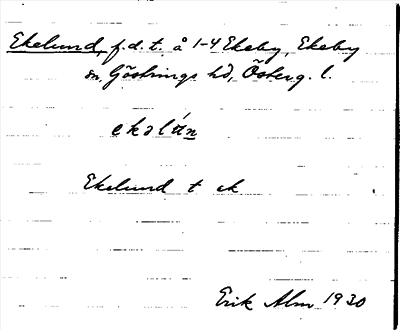 Ekelund, f.d.t. å 1-4 Ekeby, Ekeby
sn, Göstrings hd, Österg. l.
Ekelund t ek
Erik Alm 1930